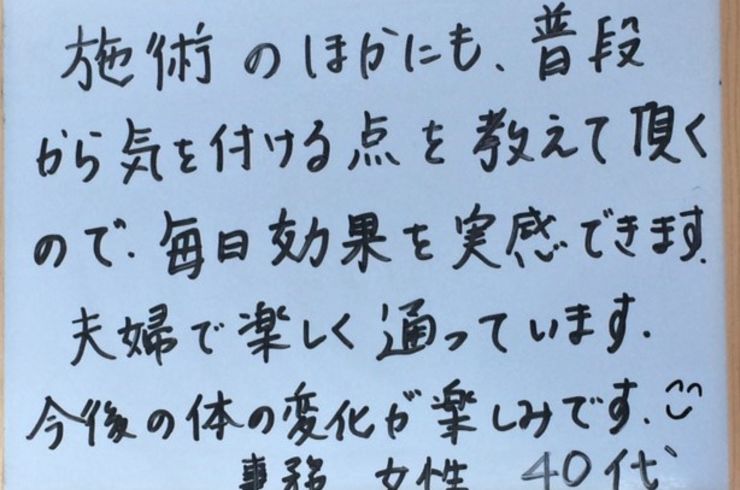 施術のほかにも、普段
から気を付ける点を教えて頂く
ので、毎日効果を実感できます。
夫婦で楽しく通っています。
今後の体の変化が楽しみです。
事務 女性 40代